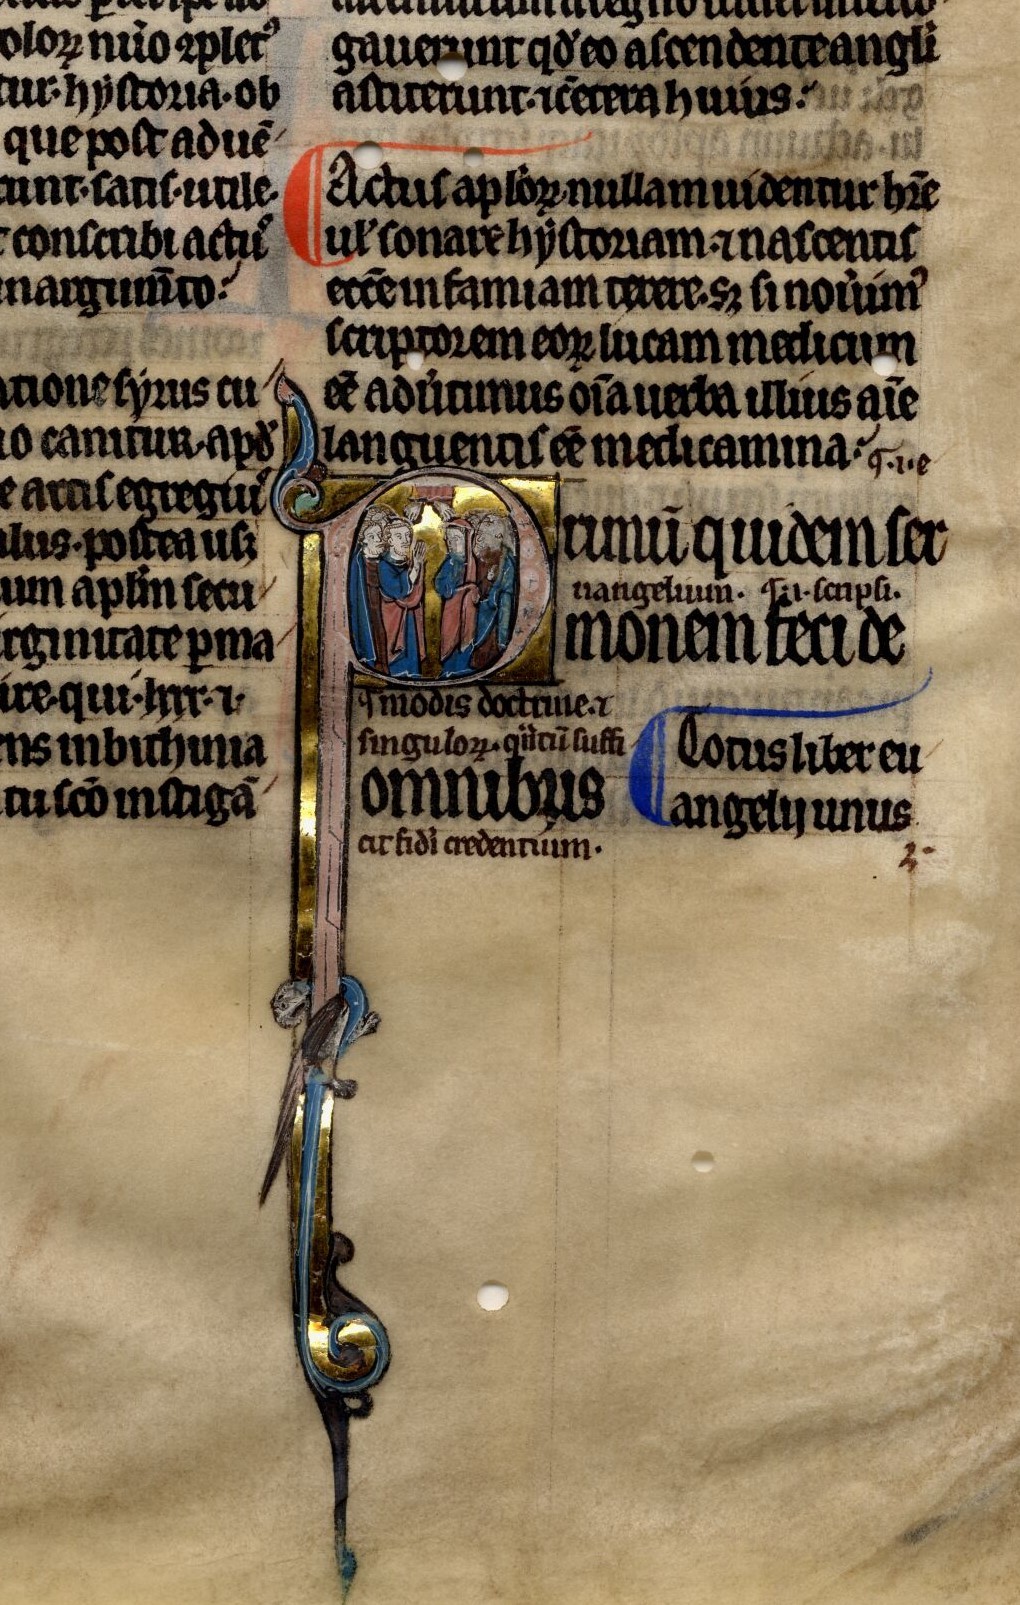 olorꝝ nr̄o ꝯplet᷒
tur· hẏstoria· ob
que post aduē
cunt· satis· utile·
conscribi actū
in argum̄to·
atione sẏrus cu
io canitur· apd̄
e artis egregiu᷒
ulus· postea usꝫ
um aplm̄ secu
irginitate ꝑma
ens in bithinia
tu sc̄o instigā
gauerunt qd̄ eo ascendente angli
astiterunt· ⁊ cetera huius·
Actus apl̄oꝝ nullam uidentur hr̄e
ul̓ sonare hẏstoriam· ⁊ nascentis
ecc̄e infamiam texere· sꝫ si nou̓im᷒
scriptorem eoꝝ lucam medicum
ee᷒ adu̓timus oīa uerba illius aīe
languentis ēe medicamina·
¶·i·e
Primū quidem ser
uangelium· ¶·i· scripsi·
monem feci de
¶ modis doctrine· ⁊
singuloꝝ· suffi
omnibus
cit fidi credentium·
Totus liber eu
angelij unus